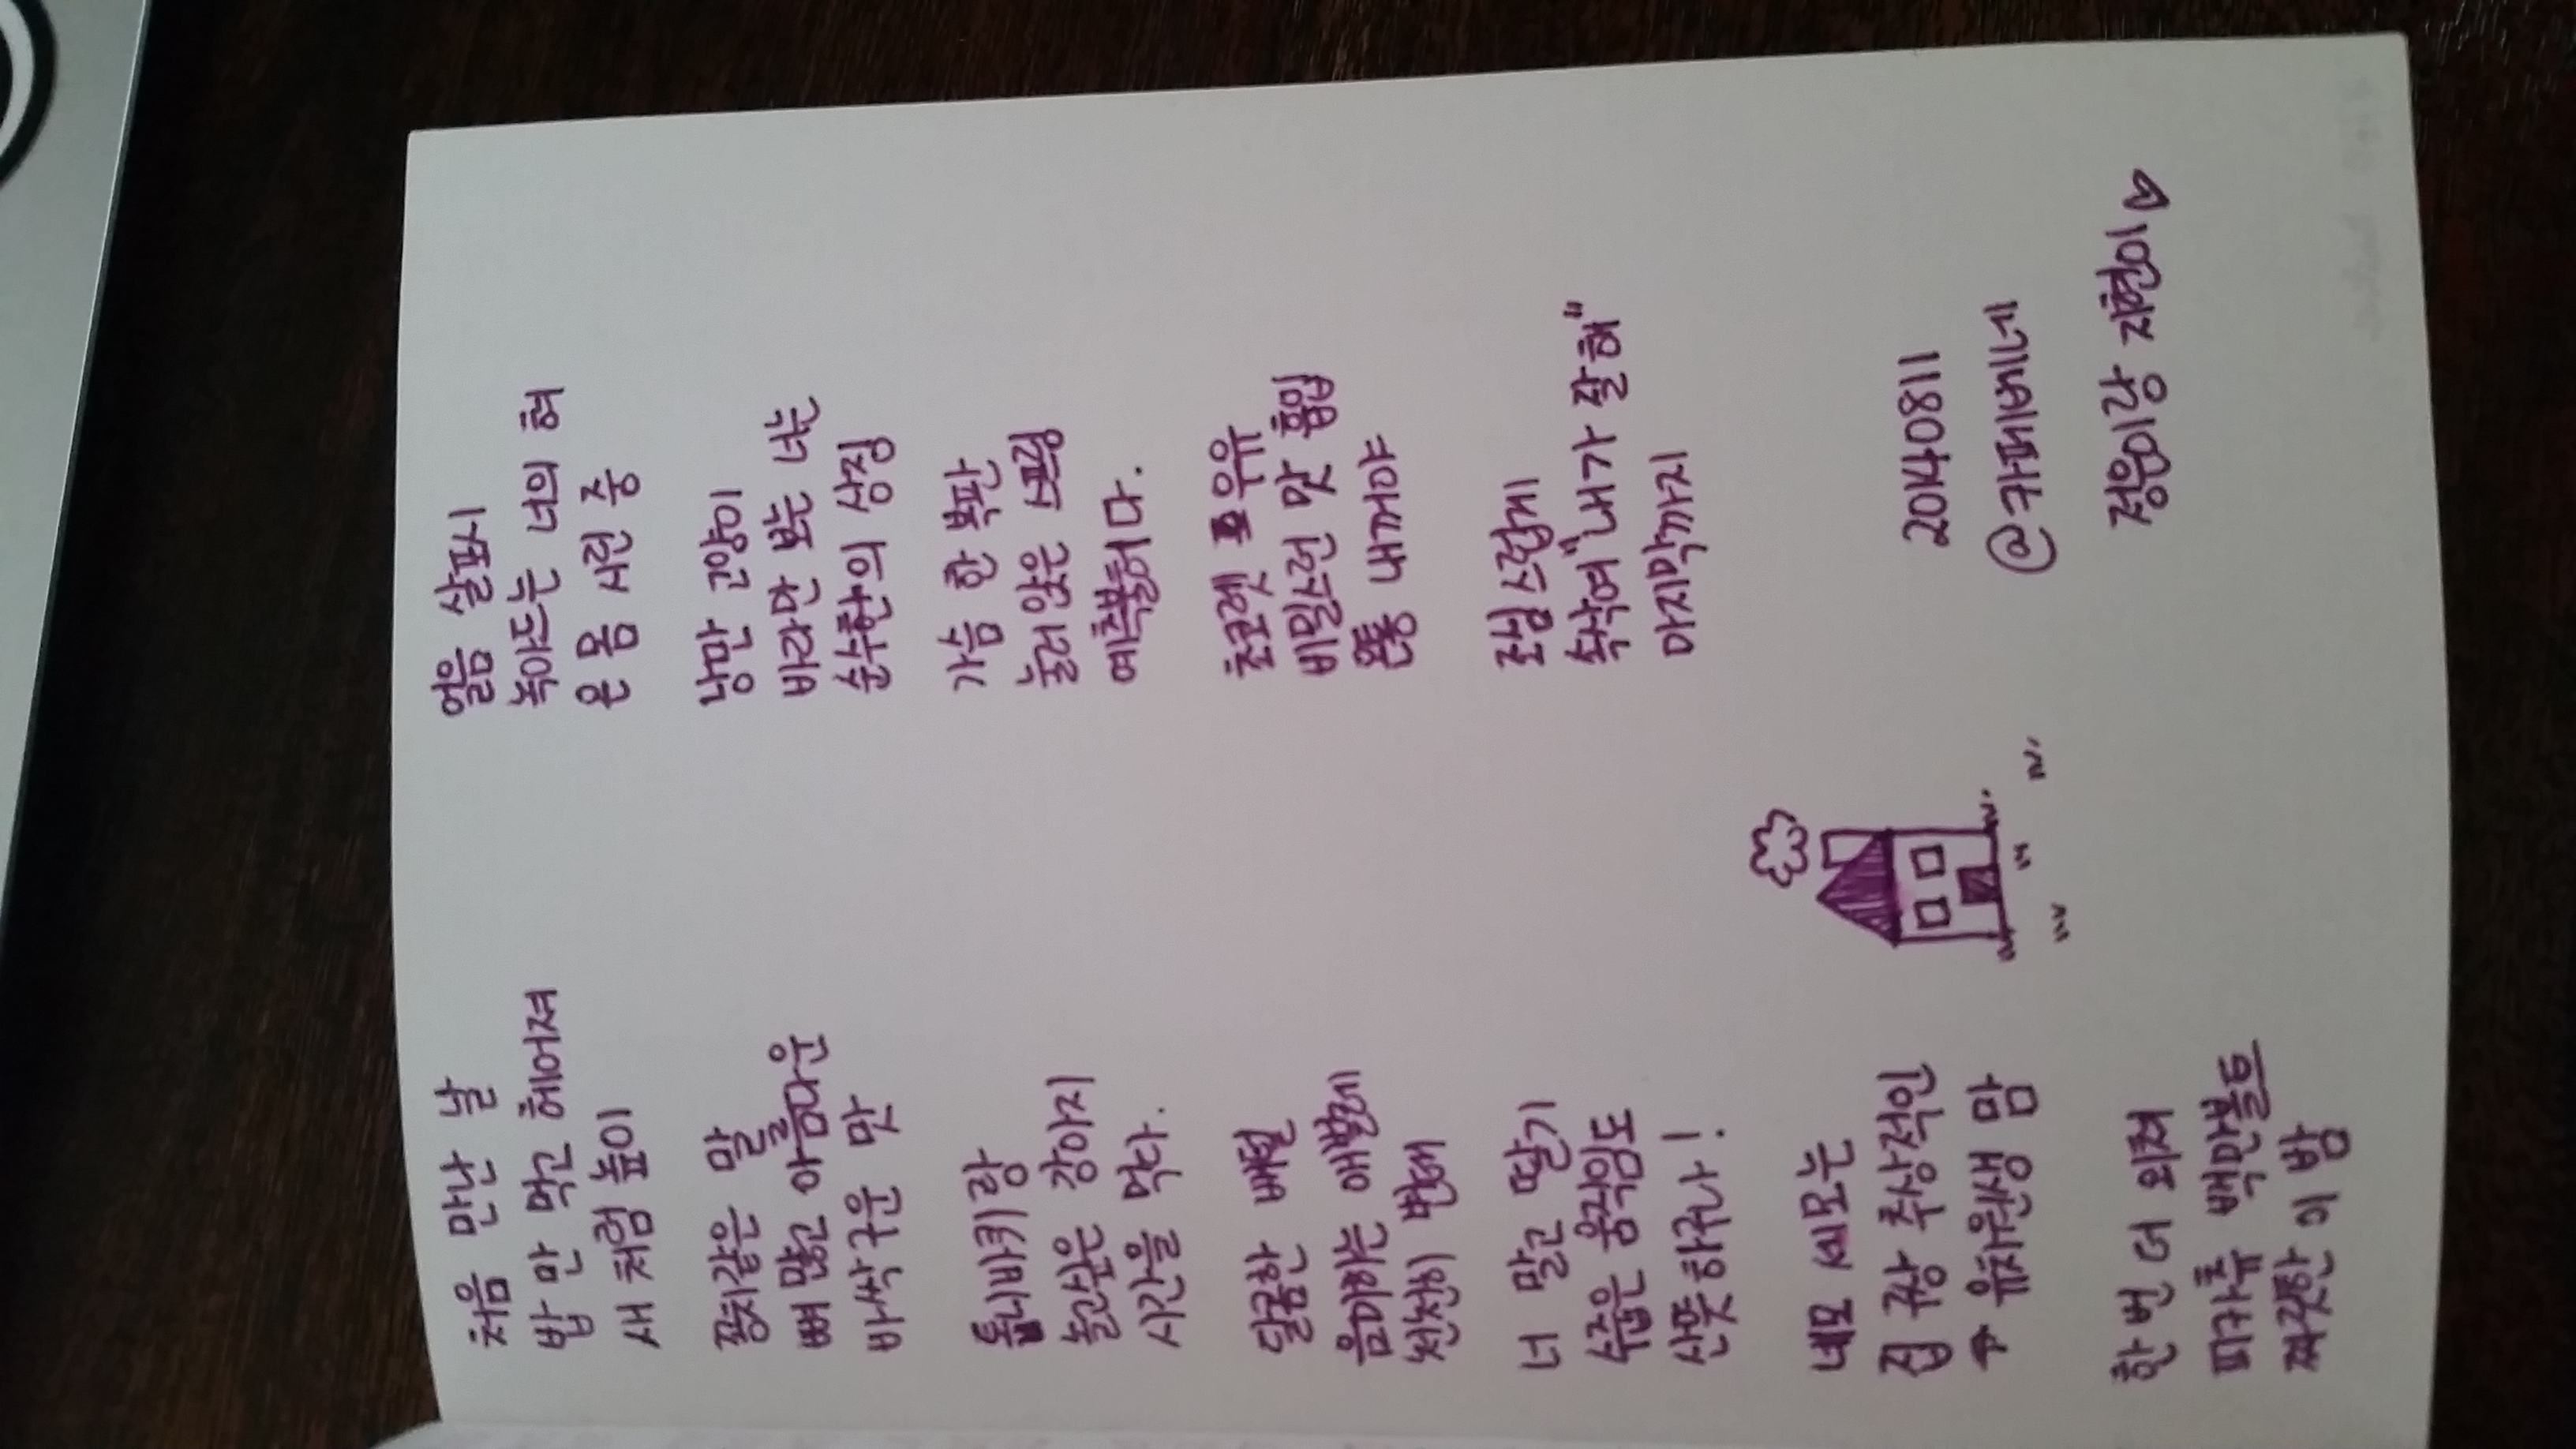 처음 만난 날
밥 만 먹고 헤어져
새 처럼 높이
꽁치같은 말
뼈 많고 아름다운
바싹구운 맛
톱니바퀴랑
놀고싶은 강아지
시간을 먹다.
달콤한 빼털
음미하는 애벌레
천천히 번데
너 말고 딸기
수줍은 움직임도
산뜻하구나!
네모 세모는
집 규상 추상적인
유치원생 맘
한 번 더 외쳐
피카츄 백만볼트
짜릿한 이 밤
얼음 살포시
녹아드는 너의 혀
온 몸 시린 중
낭만 고양이
바라만 보는 너는
순수한의 상징
가슴 한 복판
눌러 앉은 스프링
예측불허다.
초코렛 우유
비밀스런 맛 흡입
온통 내꺼야
조심스럽게
속삭여 "내가 잘 해"
마지막까지
20140811
@카페베네
정은이랑 지현이♡